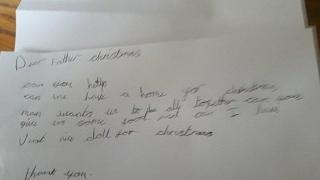 Dear Father christmas
can you help
can we have a home for christmas
mam wants us to be all together can you
give us some food and can I have
nice doll for christmas
thank you.